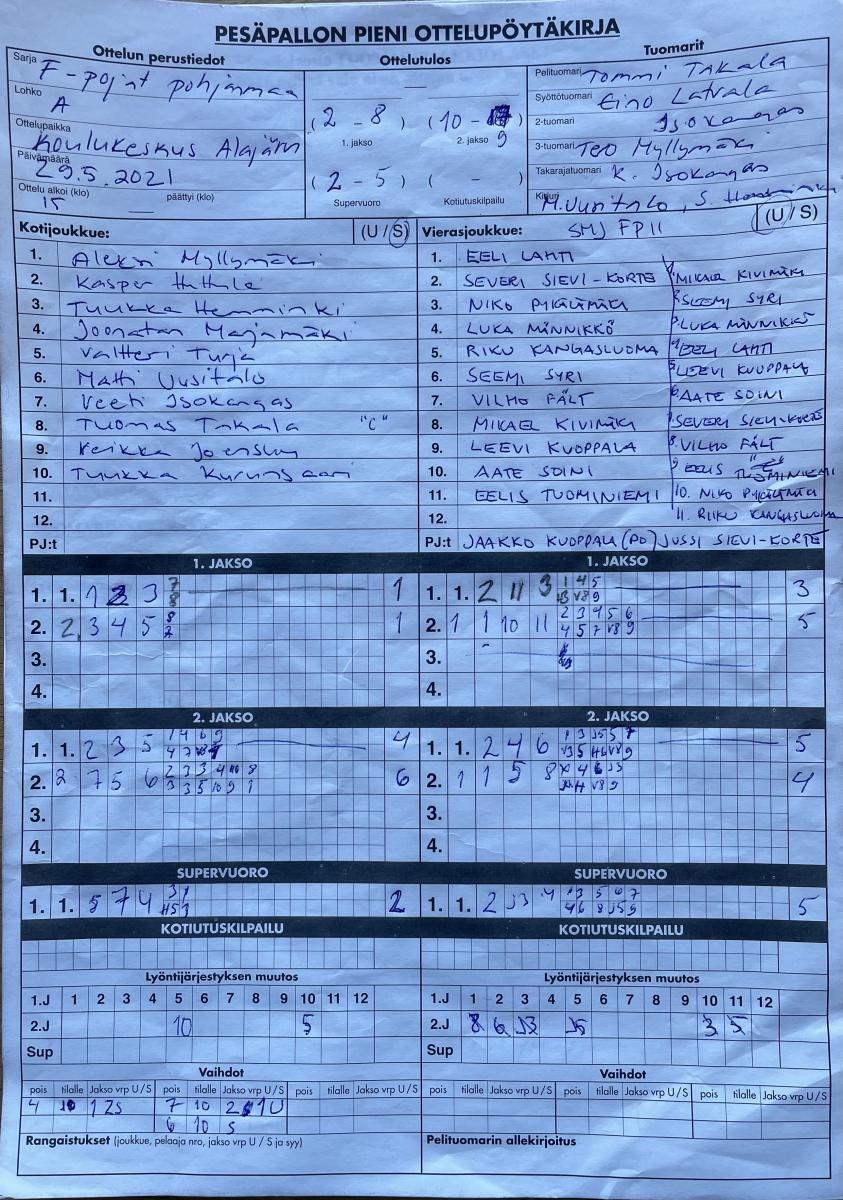 PESÄPALLON PIENI OTTELUPÖYTÄKIRJA
Ottelun perustiedot
Ottelutulos
Tuomarit
Sarja F-pojat pohjanmaa
Lohko A
Ottelupaikka Koulukeskus Alajärvi
Päivämäärä 29.5.2021
Ottelu alkoi (klo) 15 päättyi (klo)
(2 - 8) (10 - 9)
1. jakso 2. jakso
(2 - 5) ( - )
Supervuoro Kotiutuskilpailu
Pelituomari Tommi Takala
Syöttötuomari Eino Latvala
2-tuomari Isokangas
3-tuomari Teo Myllymäki
Takarajatuomari K. Isokangas
Kirjuri M. Uusitalo, S.
Kotijoukkue: (U / S)
1. Aleksi Myllymäki
2. Kasper
3. Tuukka Hemminki
4. Joonatan Marjamäki
5. Valtteri Turja
6. Matti Uusitalo
7. Veeti Isokangas
8. Tuomas Takala "C"
9. Veikka Joensuu
10. Tuukka
11.
12.
PJ:t
Vierasjoukkue: SMJ FP11 (U / S)
1. EELI LAHTI
2. SEVERI SIEVI-KORTE 1. MIKAEL KIVIMÄKI
3. NIKO PYKÄLÄMÄKI 2. SEEMI SYRI
4. LUKA MÄNNIKKÖ 3. LUKA MÄNNIKKÖ
5. RIKU KANGASLUOMA 4. EELI LAHTI
6. SEEMI SYRI 5. LEEVI KUOPPALA
7. VILHO FÄLT 6. AATE SOINI
8. MIKAEL KIVIMÄKI 7. SEVERI SIEVI-KORTE
9. LEEVI KUOPPALA 8. VILHO FÄLT
10. AATE SOINI 9. EELIS TUOMINIEMI
11. EELIS TUOMINIEMI 10. NIKO PYKÄLÄMÄKI
12. 11. RIIKU KANGASLUOMA
PJ:t JAAKKO KUOPPALA (PO) JUSSI SIEVI-KORTE
1. JAKSO
1. 1. 1 2 3 7 8 1
2. 2. 3 4 5 8 2 1
3.
4.
1. JAKSO
1. 1. 2 11 3 1 4 5 3
2. 1 1 10 11 2 3 4 5 6 5
4 5 7 v8 9
3.
4.
2. JAKSO
1. 1. 2 3 5 1 4 6 9 4
2. 2 7 5 6 2 3 3 4 10 8 6
3 3 5 10 9 1
3.
4.
2. JAKSO
1. 1. 2 4 6 5
2. 1 1 5 8 4
3.
4.
SUPERVUORO
1. 1. 5 7 4 3 1 2
SUPERVUORO
1. 1. 2 J3 4 5
KOTIUTUSKILPAILU
KOTIUTUSKILPAILU
Lyöntijärjestyksen muutos
1.J 1 2 3 4 5 6 7 8 9 10 11 12
2.J 10 5
Sup
Lyöntijärjestyksen muutos
1.J 1 2 3 4 5 6 7 8 9 10 11 12
2.J 8 6 J3 J5 3 5
Sup
Vaihdot
pois tilalle Jakso vrp U / S pois tilalle Jakso vrp U / S pois tilalle Jakso vrp U / S
4 10 1 2S 7 10 2 1U
6 10 S
Vaihdot
pois tilalle Jakso vrp U / S pois tilalle Jakso vrp U / S pois tilalle Jakso vrp U / S
Rangaistukset (joukkue, pelaaja nro, jakso vrp U / S ja syy)
Pelituomarin allekirjoitus